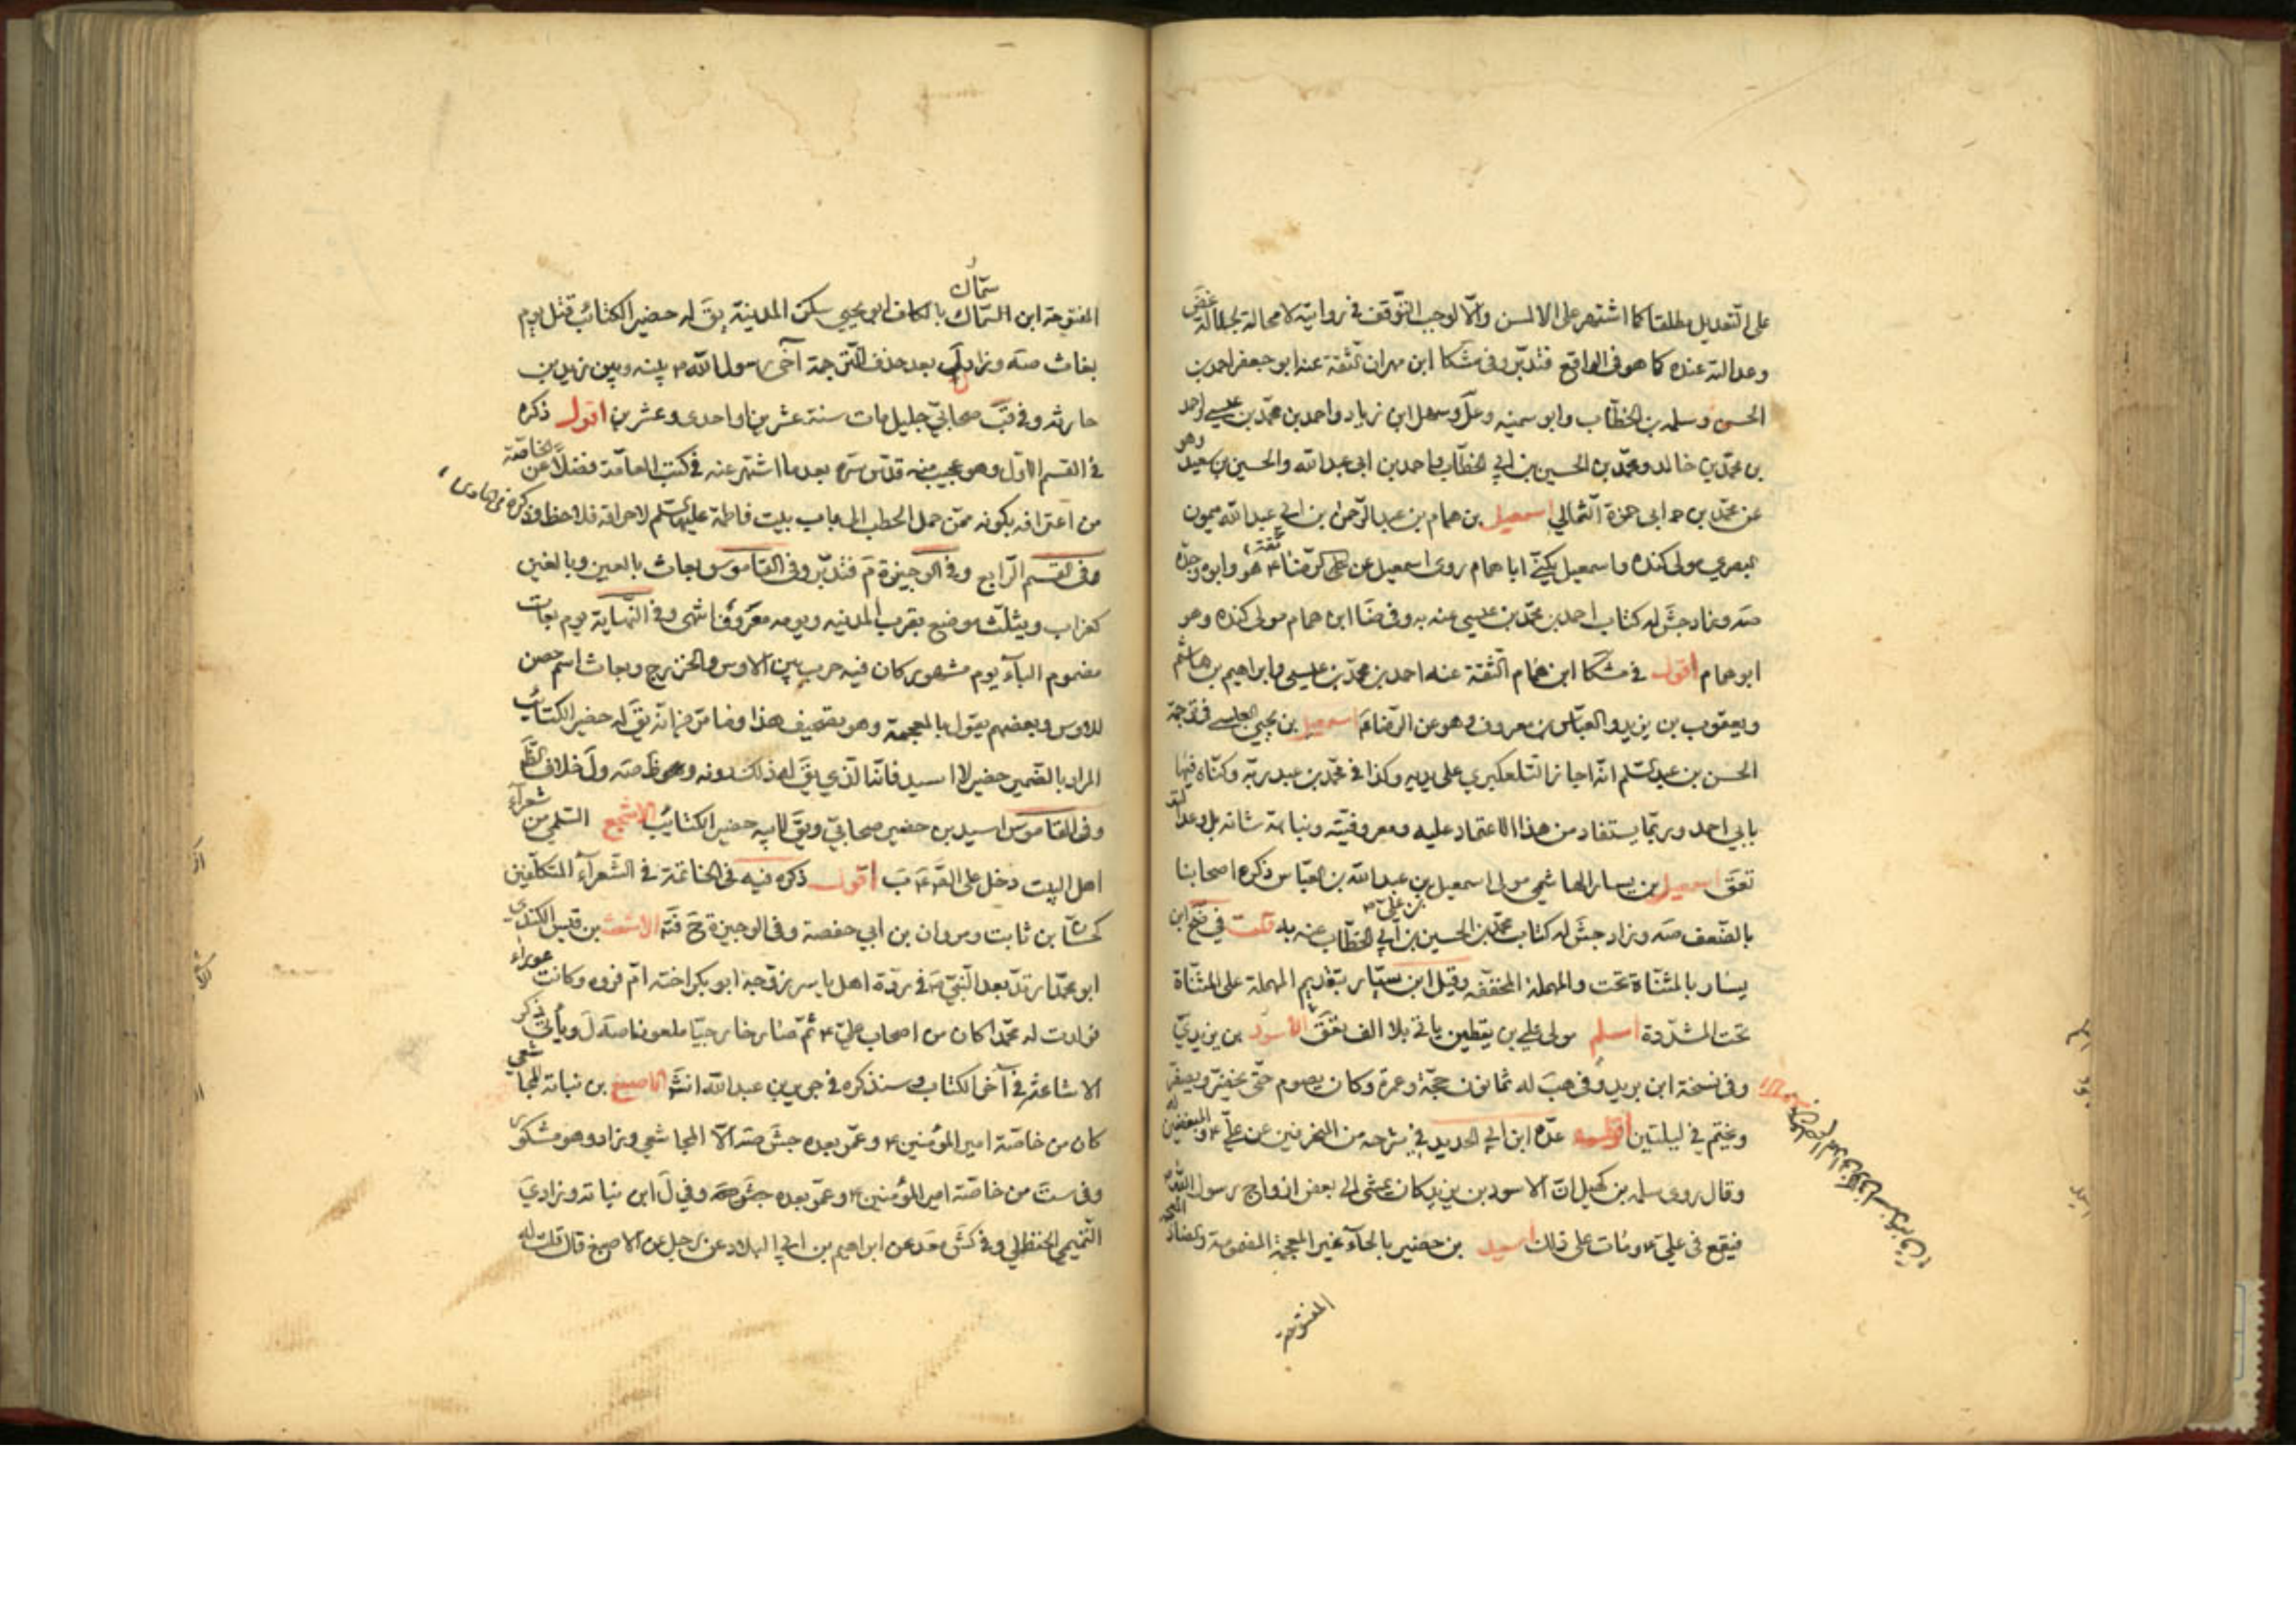 على التعديل مطلقا كما اشتهر على الالسن والا لوجب التوقف في روايته لا محالة لجلالته
وعدالته عنده كما هو في الواقع فتدبر وفي مشكا ابن مهران الثقة عنه ابو جعفر احمد بن
الحسن وسلمه بن الخطاب وابو سمينه وعل وسهل ابن زياد واحمد بن محمد بن عيسى واحمد
بن محمد بن خالد ومحمد بن الحسين بن ابي الخطاب واحمد بن ابي عبدالله والحسين بن سعيد وهو
عن محمد بن ابى حمزة الثمالي اسمعيل بن همام بن عبدالرحمن بن ابي عبدالله ميمون
البصري مولى كنده واسمعيل يكنى ابا همام روى اسمعيل عن الرضا ع ثقة هو وابوه وجده
صه وزاد جش له كتاب احمد بن محمد بن عيسى عنه به وفي ضا ابن همام مولى كنده وهو
ابو همام اقول في مشكا ابن همام الثقة عنه احمد بن محمد بن عيسى وابراهيم بن هاشم
ويعقوب بن يزيد والعباس بن معروف وهو عن الرضا ع اسمعيل بن يحيى العبسى في ترجمة
الحسن بن انه اجاز التلعكبري على يديه وكذا في محمد بن عبد ربه وكناه فيها
بابي احمد وربما يستفاد من هذا الاعتماد عليه ومعروفيته ونباهة شانه بل وعدالته
تعق اسمعيل بن يسار الهاشمي مولى اسمعيل بن علي بن عبدالله بن العباس ذكره اصحابنا
بالضعف صه وزاد جش له كتاب محمد بن الحسين بن ابي الخطاب عنه به قلت في ضح ابن
يسار بالمثناة تحت والمهملة المخففه وقيل ابن سيار بتقديم المهملة على المثناة
تحت المشددة اسلم مولى علي بن يقطين ياتي بلا الف تعق الاسود بن يزيد ي
وفي نسخة ابن بريد وفي هب له ثمانون حجة وعمرة وكان يصوم حتى يخضر ويصفر
ويختم في ليلتين اقول عده ابن ابي الحديد في شرحه من المنحرفين عن علي ع والمبغضين له
وقال روى سلمه بن كهيل ان الاسود بن يزيد كان يمشى الى بعض ازواج رسول الله ص
فيقع في علي ع ومات على ذلك اسيد بن حضير بالحاء غير المعجمة المضمومة والضاد المعجمة
المفتوحة
المفتوحة ابن السماك سماك بالكاف ابو يحيى سكن المدينة يق له حضير الكتائب قتل يوم
بغاث صه وزاد ل بعد حذف الترجمة آخى رسول الله ص بينه وبين زيد بن
حارثه وفي قب صحابي جليل مات سنة عشرين او احدى وعشرين اقول ذكره
في القسم الاول وهو عجيب منه قدس سره بعد ما اشتهر عنه في كتب العامة فضلا عن الخاصة
من اعترافه بكونه ممن حمل الحطب الى باب بيت فاطمة عليها السلم لاحراقه فلاحظ وذكره في الحاوى
في القسم الرابع وفي الوجيزة م فتدبر وفي القاموس بعاث بالعين وبالغين
كغراب ويثلث موضع بقرب المدينه ويومه معروف انتهى وفي النهاية يوم بعاث
مضموم الباء يوم مشهور كان فيه حرب بين الاوس والخزرج وبعاث اسم حصن
للاوس وبعضهم يقول بالمعجمة وهو تصحيف هذا وما مر من انه يق له حضير الكتائب
المراد بالضمير حضير لا اسيد فانما الذي يق له ذلك دونه وظ صه ول خلاف الظ
وفي القاموس اسيد بن حضير صحابي ويق لابيه حضير الكتائب الاشجع السلمي من شعراء
اهل البيت دخل على الق ع ب اقول ذكره فيه في الخاتمة في الشعراء المتكلفين
كحسان بن ثابت ومروان بن ابي حفصة وفي الوجيزة ح الاشعث بن قيس الكندي
ابو محمد ارتد بعد النبي ص في ردة اهل ياسر زوجه ابو بكر اخته ام فروه وكانت عوراء
فولدت له محمدا كان من اصحاب علي ع ثم صار خارجيا ملعونا صه ل ويأتي ذكر
الاشاعثة في آخر الكتاب وسنذكره في جرير بن عبدالله انش الاصبغ بن نباتة المجاشعي
كان من خاصة امير المؤمنين ع وعمر بعده جش صه الا المجاشعي وزاد وهو مشكور
وفي ست من خاصة امير المؤمنين ع وعمر بعده جش صه وفي ل ابن نباته وزاد ي
التميمي الحنظلي وفي كش محمد عن ابراهيم بن ابي البلاد عن رجل عن الاصبغ قال قلت له